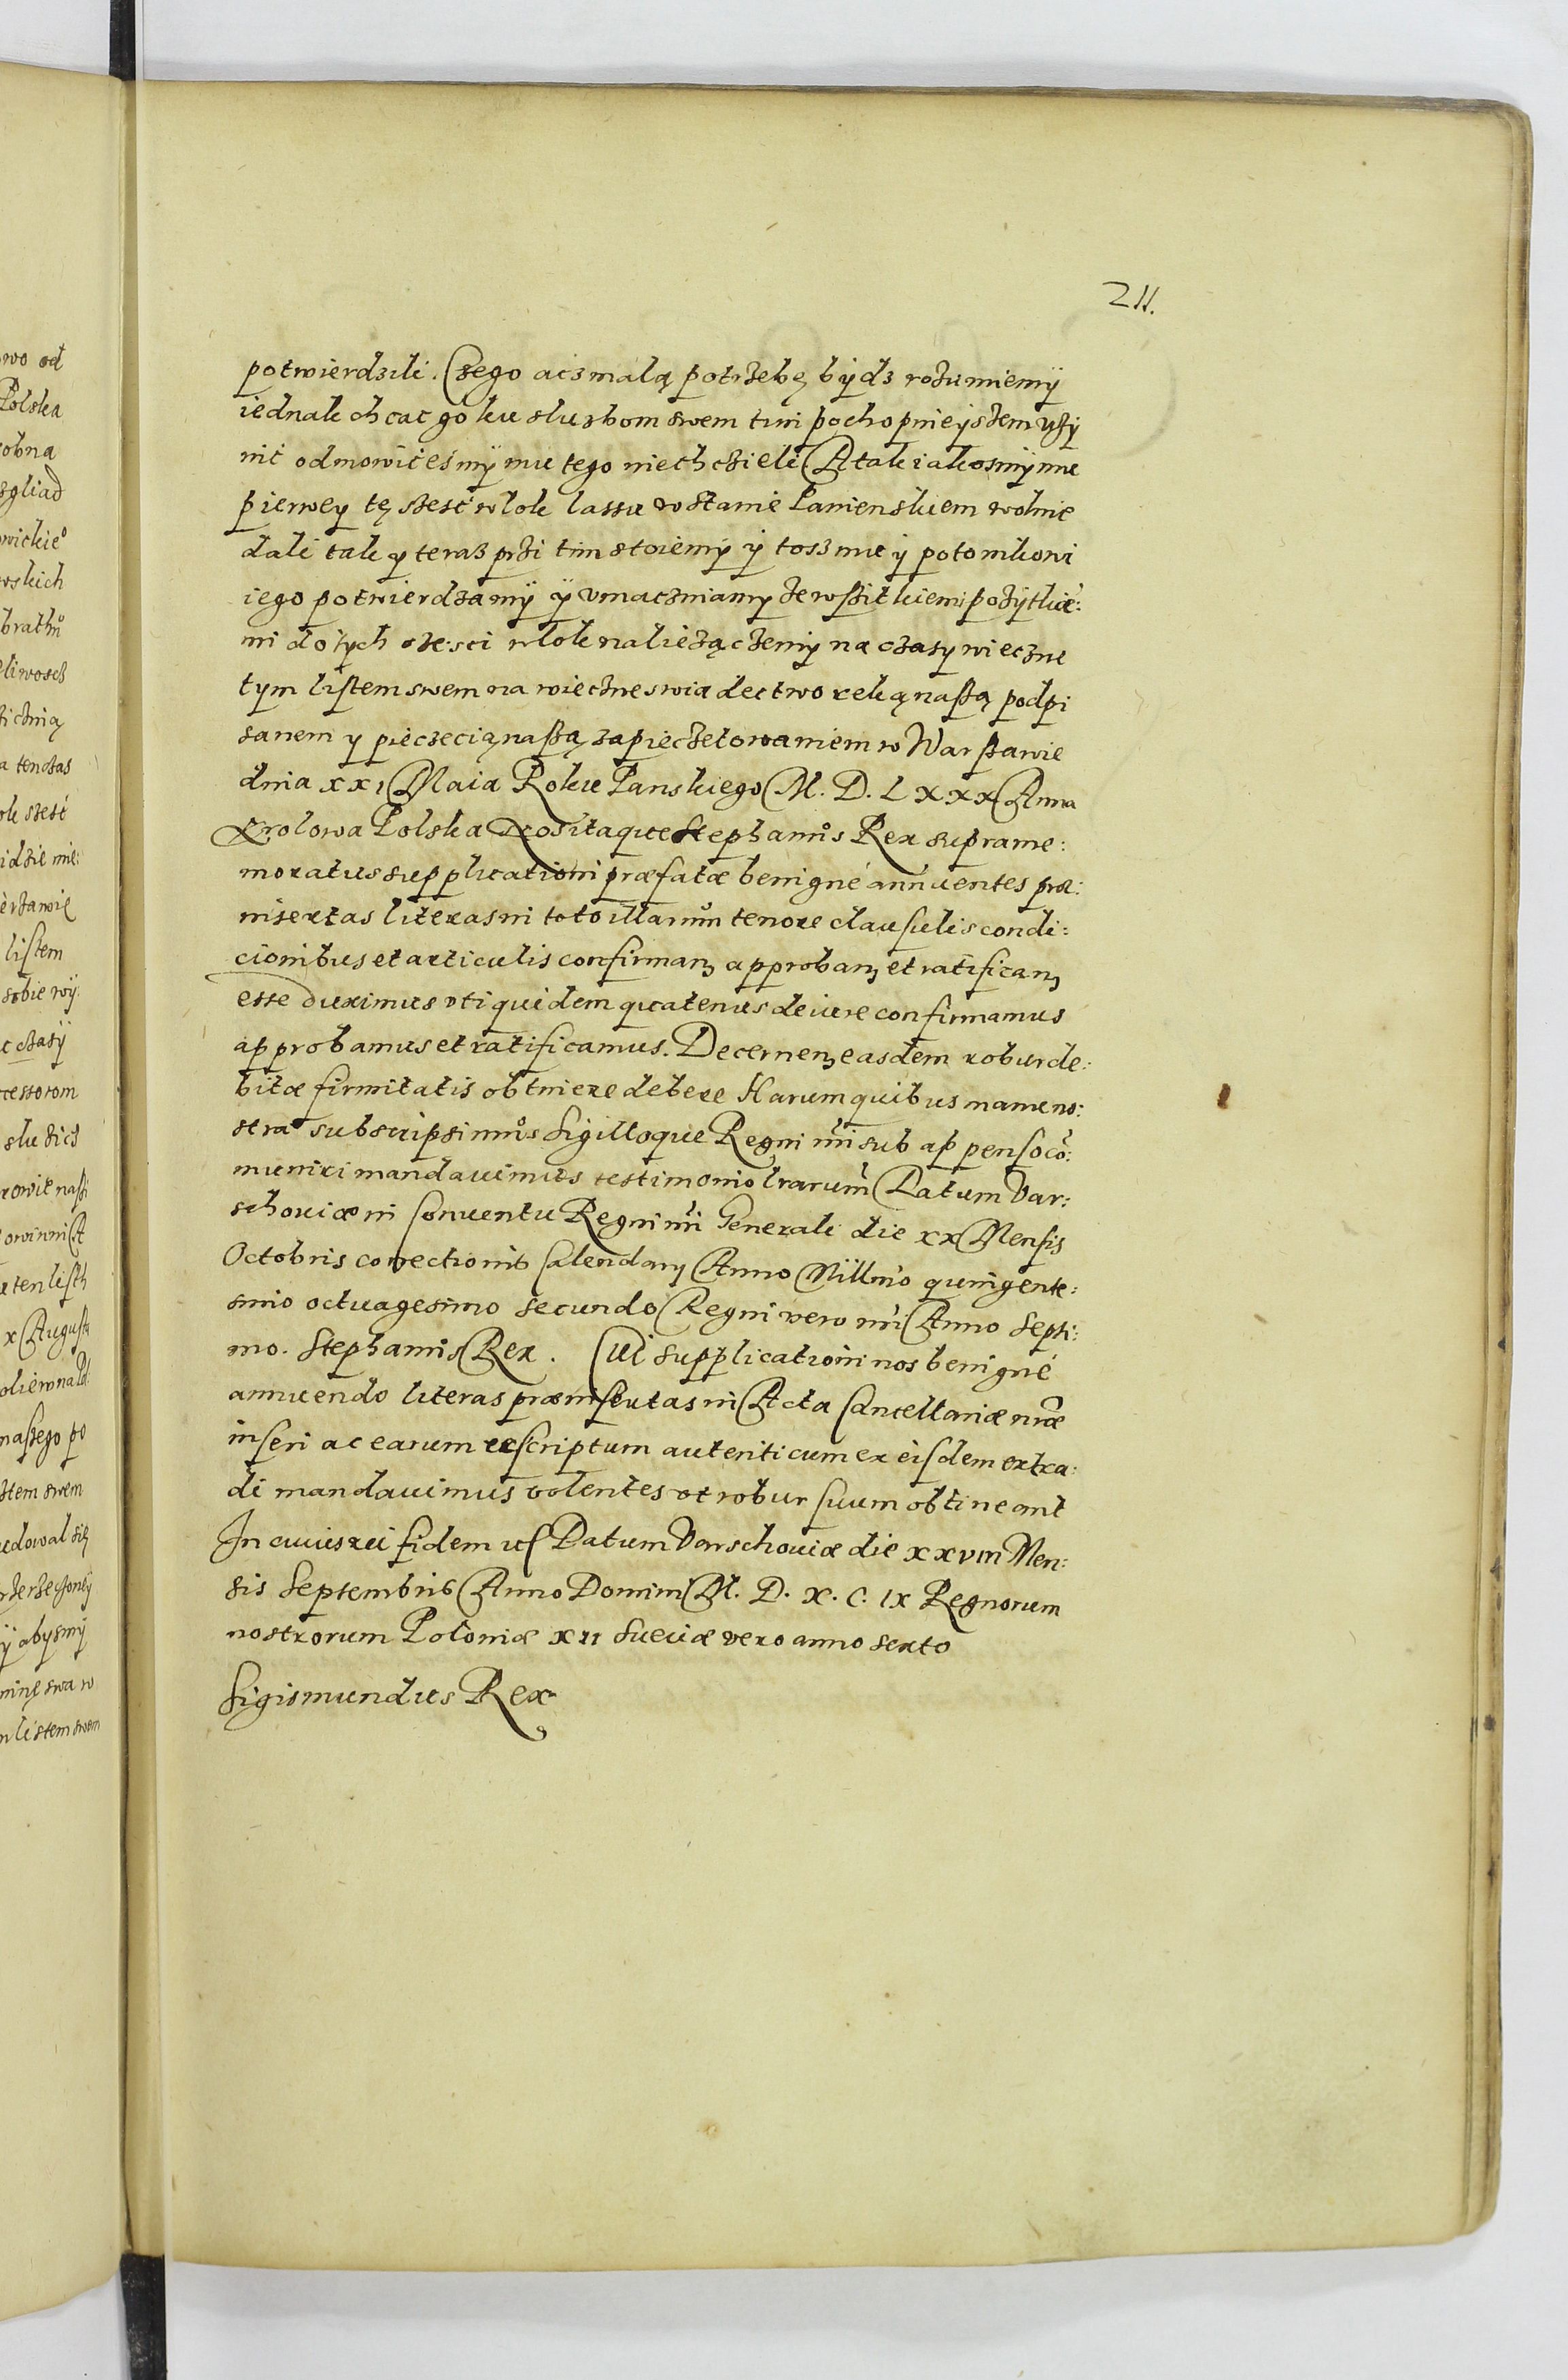 211.
potwierdzili. Czego aczmalą potrzebę bydz rozumiemy
iednak chcac go ku sluzbom swem tim pochopnieyszem uczy
nić odmowićesmy mu tego niechczieli A tak iakosmy mu
pierwey tę szesć wlok lassu w stanie Panienskiem wolnie
dali tak y teraz przi tim stoiemy y tosz mu y potomkowi
iego potwierdzamy y vmaczniamy ze wszitkiemi pożytkie:
mi do tych szesci wlok należączemy na czasy wieczne
tym listem swem na wieczne swiadectwo ręką naszą podpi
sanem y pieczecią naszą zapieczetowaniem w Warszawie
dnia xxi Maia Roku Panskiego M. D. L xxx Anna
Krolowa Polska Nos itaque Stephanus Rex suprame:
moratus supplicationi præfatæ benigné annuentes præ:
insertas literas in toto illarum tenore clausulis condi:
cionibus et articulis confirmanz approbanz et ratificanz
esse duximus vti quidem quatenus de iure confirmamus
approbamus et ratificamus. Decernenz easdem robur de:
bitæ firmitatis obtinere debere Harum quibus manu no:
stra subscripsimus Sigilloque Regni nri sub appenso cō:
muniri mandauimus testimonio lrarum Datum Var:
schouiæ in Conuentu Regni nri Generali die xx Mensis
Octobris correctionis Calendarz Anno Millmo quingente:
simo octuagesimo secundo Regni vero nri Anno Septi:
mo. Stephanus Rex. Cui supplicationi nos benigné
annuendo literas præinsertas in Acta Cancellariæ nræ
inseri ac earum rescriptum autenticum ex eisdem extra:
di mandauimus volentes vt robur suum obtineant
In cuius rei fidem etc Datum Varschouiæ die xxviii Men:
sis Septembris Anno Domini M. D. X. C. ix Regnorum
nostrorum Poloniæ xii Sueciæ vero anno sexto
Sigismundus Rex